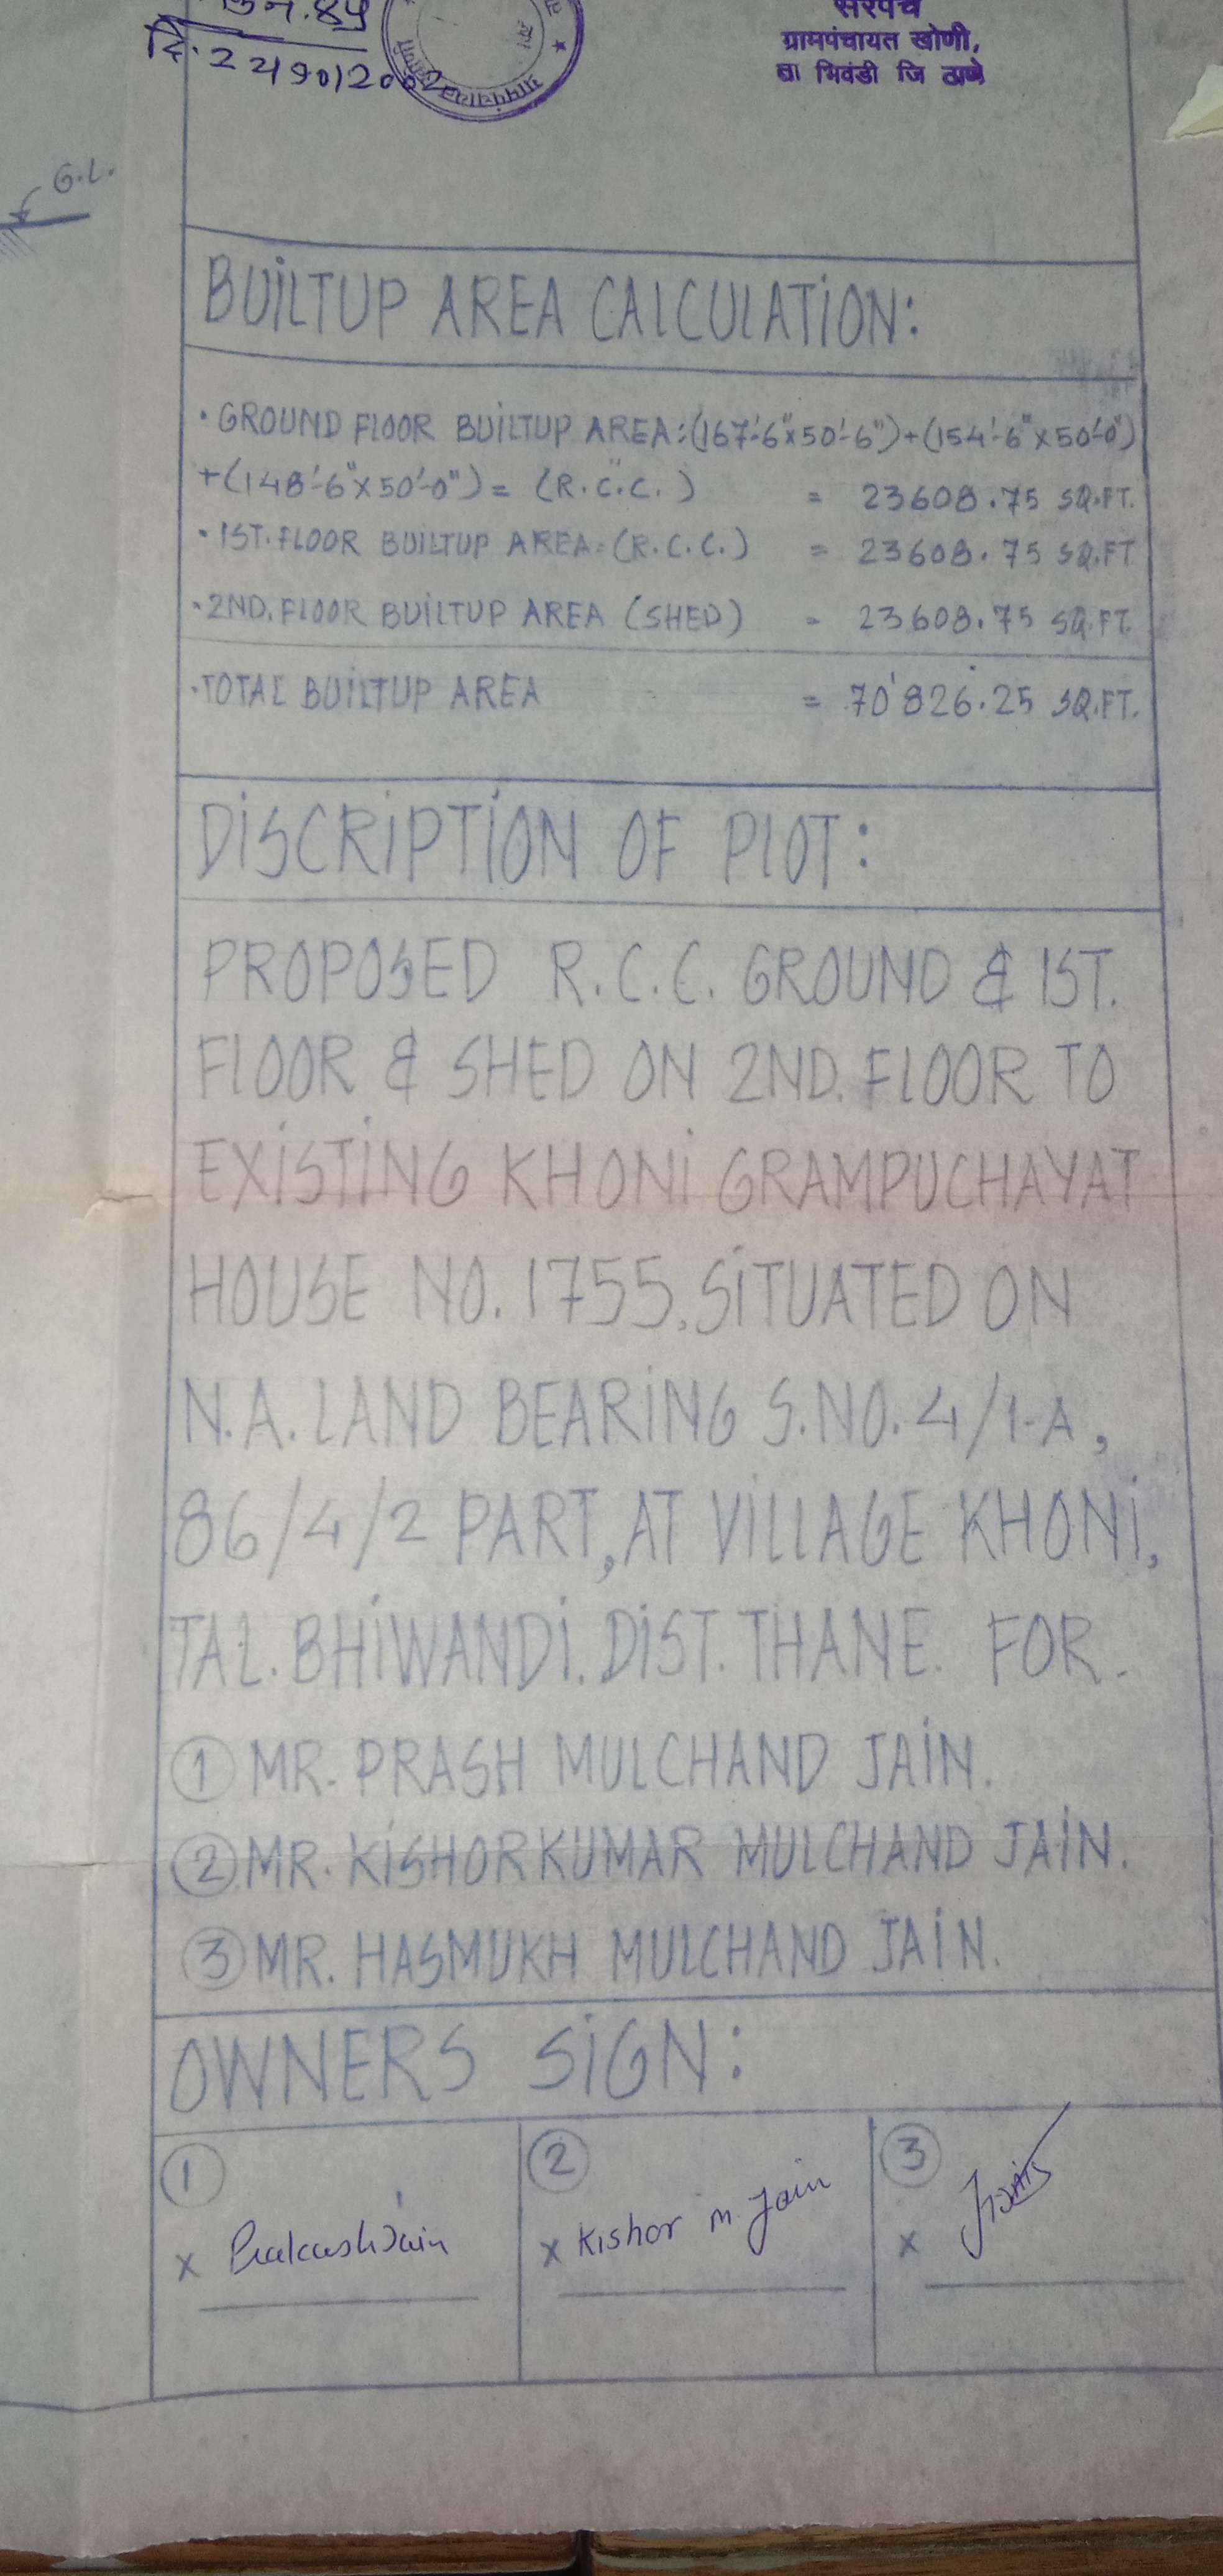 दि. 22/10/2002
सरपंच
ग्रामपंचायत खोणी,
ता भिवंडी जि ठाणे
G.L.
BUILTUP AREA CALCULATION:
• GROUND FLOOR BUILTUP AREA:(167'-6"x50'-6")+(154'-6"x50'-0")
+(148'-6"x50'-0")= (R.C.C.) = 23608.75 SQ.FT.
• 1ST. FLOOR BUILTUP AREA=(R.C.C.) = 23608.75 SQ.FT
• 2ND. FLOOR BUILTUP AREA (SHED) = 23608.75 SQ.FT.
• TOTAL BUILTUP AREA = 70'826.25 SQ.FT.
DISCRIPTION OF PLOT:
PROPOSED R.C.C. GROUND & 1ST.
FLOOR & SHED ON 2ND. FLOOR TO
EXISTING KHONI GRAMPUCHAYAT
HOUSE NO. 1755, SITUATED ON
N.A. LAND BEARING S.NO. 4/1-A,
86/4/2 PART, AT VILLAGE KHONI,
TAL. BHIWANDI. DIST. THANE. FOR.
① MR. PRASH MULCHAND JAIN.
② MR. KISHORKUMAR MULCHAND JAIN.
③ MR. HASMUKH MULCHAND JAIN.
OWNERS SIGN:
① ② ③
x Prakash Jain x Kishor M. Jain x